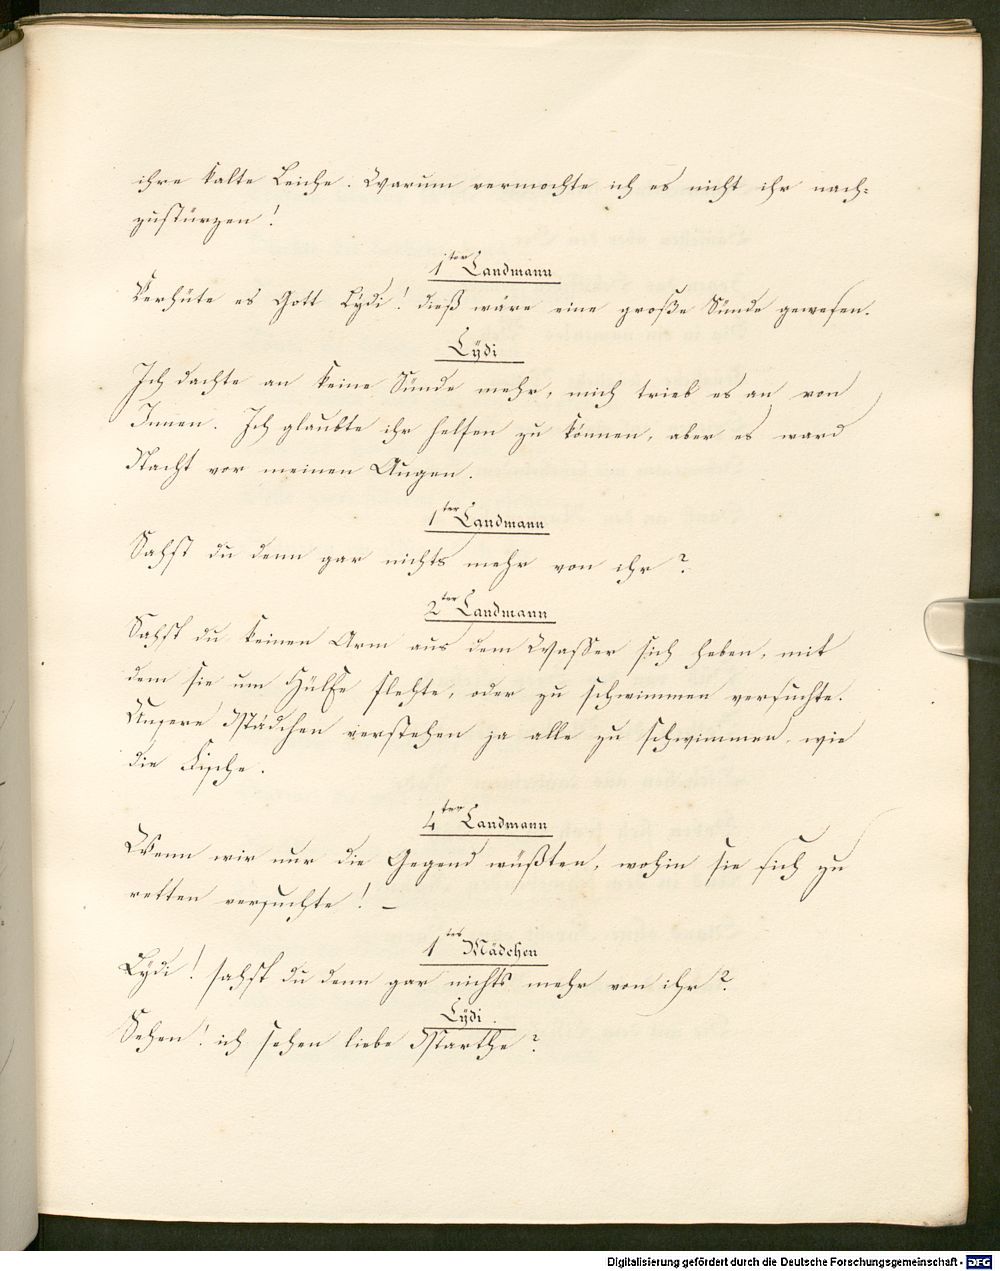 ihre kalte Leiche. Warum vermochte ich es nicht ihr nach-
zustürzen!
1ter Landmann
Verhüte es Gott Lÿdi! dieß wäre eine große Sünde gewesen.
Lÿdi
Ich dachte an keine Sünde mehr, mich trieb es an von
Innen. Ich glaubte ihr helfen zu können, aber es ward
Nacht vor meinen Augen.
1ter Landmann
Sahst du denn gar nichts mehr von ihr?
2ter Landmann
Sahst du keinen Arm aus dem Wasser sich heben, mit
dem sie um Hülfe flehte, oder zu schwimmen versuchte.
Unsere Mädchen verstehen ja alle zu schwimmen, wie
die Fische.
4ter Landmann
Wenn wir nur die Gegend wüßten, wohin sie sich zu
retten versuchte! –
1tes Mädchen
Lÿdi! sahst du denn gar nichts mehr von ihr?
Lÿdi.
Sehen! ich sehen liebe Marthe?
Digitalisierung gefördert durch die Deutsche Forschungsgemeinschaft - DFG